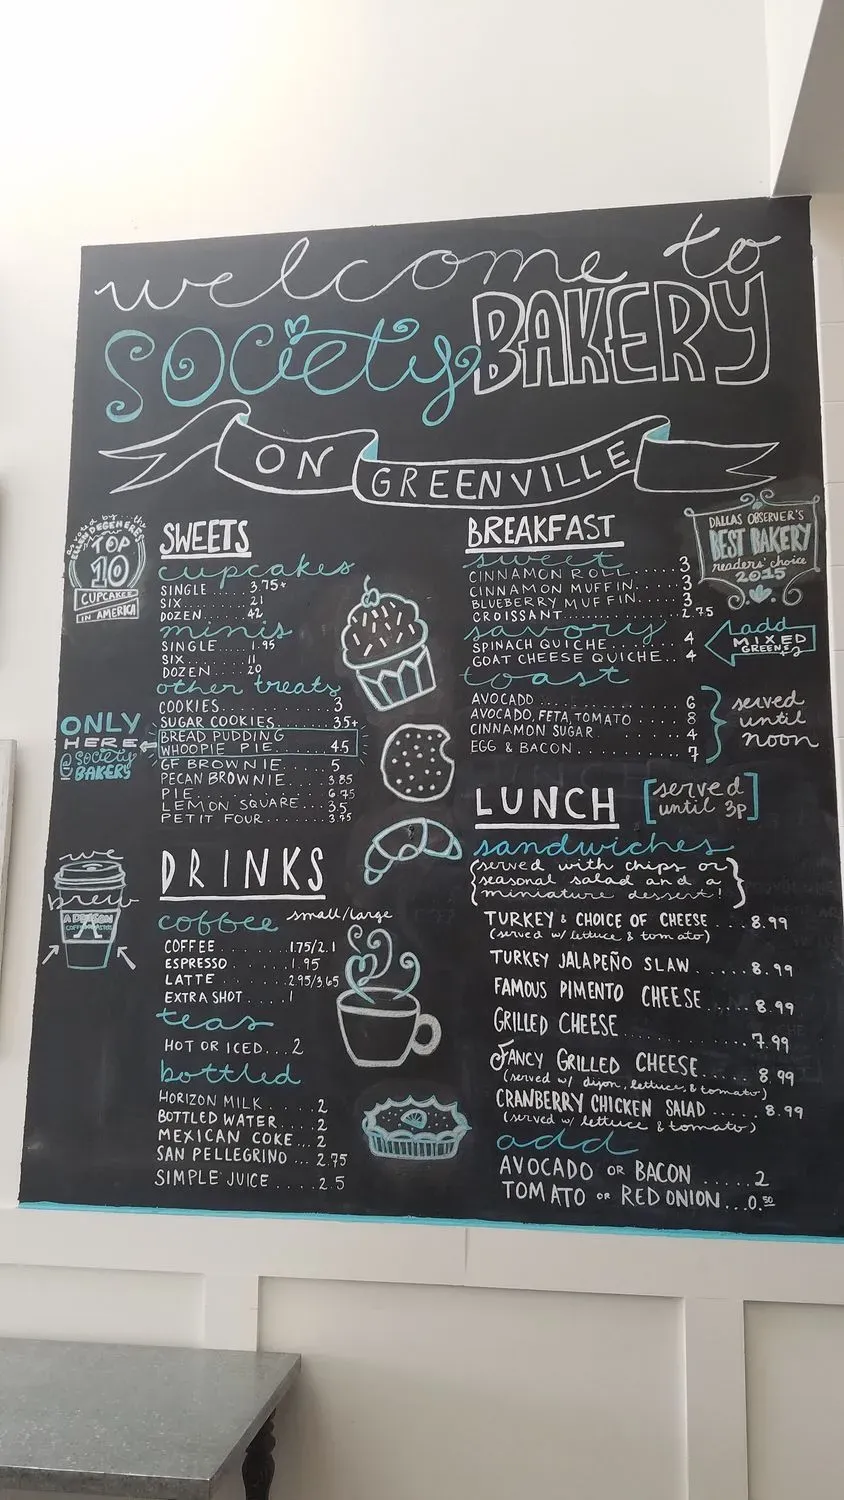 welcome to
society BAKERY
ON GREENVILLE
voted by the
ELLEN DEGENERES
TOP
10
CUPCAKES
IN AMERICA
SWEETS
cupcakes
SINGLE 3.75+
SIX 21
DOZEN 42
minis
SINGLE 1.95
SIX 11
DOZEN 20
other treats
COOKIES 3
SUGAR COOKIES 3.5+
BREAD PUDDING
WHOOPIE PIE 4.5
GF BROWNIE 5
PECAN BROWNIE 3.85
PIE 6.75
LEMON SQUARE 3.5
PETIT FOUR 3.95
ONLY
HERE
@ society
BAKERY
we
brew
DRINKS
coffee small/large
COFFEE 1.75/2.1
ESPRESSO 1.95
LATTE 2.95/3.65
EXTRA SHOT 1
teas
HOT OR ICED 2
bottled
HORIZON MILK 2
BOTTLED WATER 2
MEXICAN COKE 2
SAN PELLEGRINO 2.75
SIMPLE JUICE 2.5
BREAKFAST
sweet
CINNAMON ROLL 3
CINNAMON MUFFIN 3
BLUEBERRY MUFFIN 3
CROISSANT 2.75
savory
SPINACH QUICHE 4
GOAT CHEESE QUICHE 4
toast
AVOCADO 6
AVOCADO, FETA, TOMATO 8
CINNAMON SUGAR 4
EGG & BACON 7
DALLAS OBSERVER'S
BEST BAKERY
readers' choice
2015
add
MIXED
GREENS +2
served
until
noon
LUNCH
[served
until 3p]
sandwiches
{served with chips or
seasonal salad and a
miniature dessert!}
TURKEY & CHOICE OF CHEESE 8.99
(served w/ lettuce & tomato)
TURKEY JALAPEÑO SLAW 8.99
FAMOUS PIMENTO CHEESE 8.99
GRILLED CHEESE 7.99
FANCY GRILLED CHEESE 8.99
(served w/ dijon, lettuce, & tomato)
CRANBERRY CHICKEN SALAD 8.99
(served w/ lettuce & tomato)
add
AVOCADO OR BACON 2
TOMATO OR RED ONION 0.50